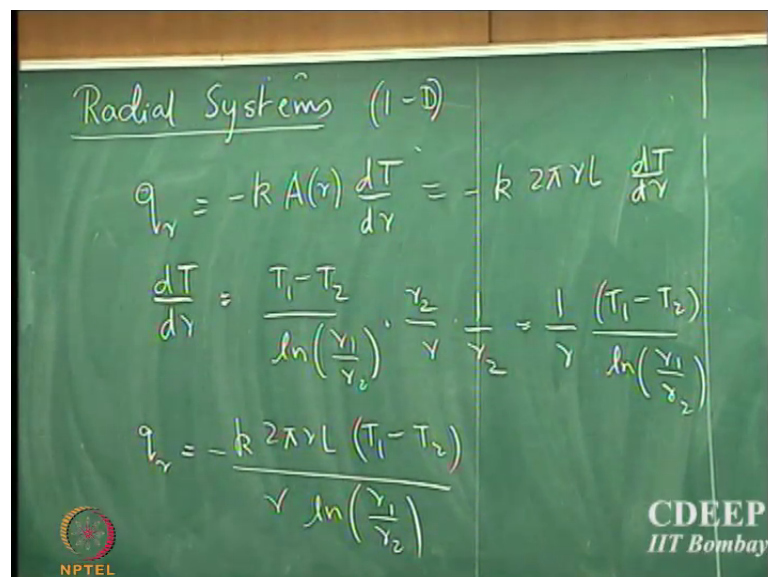 Radial Systems (1-D)
q_r = -k A(r) dT/dr = -k 2πrL dT/dr
dT/dr = (T_1-T_2)/ln(r_1/r_2) · r_2/r · 1/r_2 = 1/r (T_1-T_2)/ln(r_1/r_2)
q_r = -k 2πrL (T_1-T_2)/r ln(r_1/r_2)
NPTEL
CDEEP
IIT Bombay